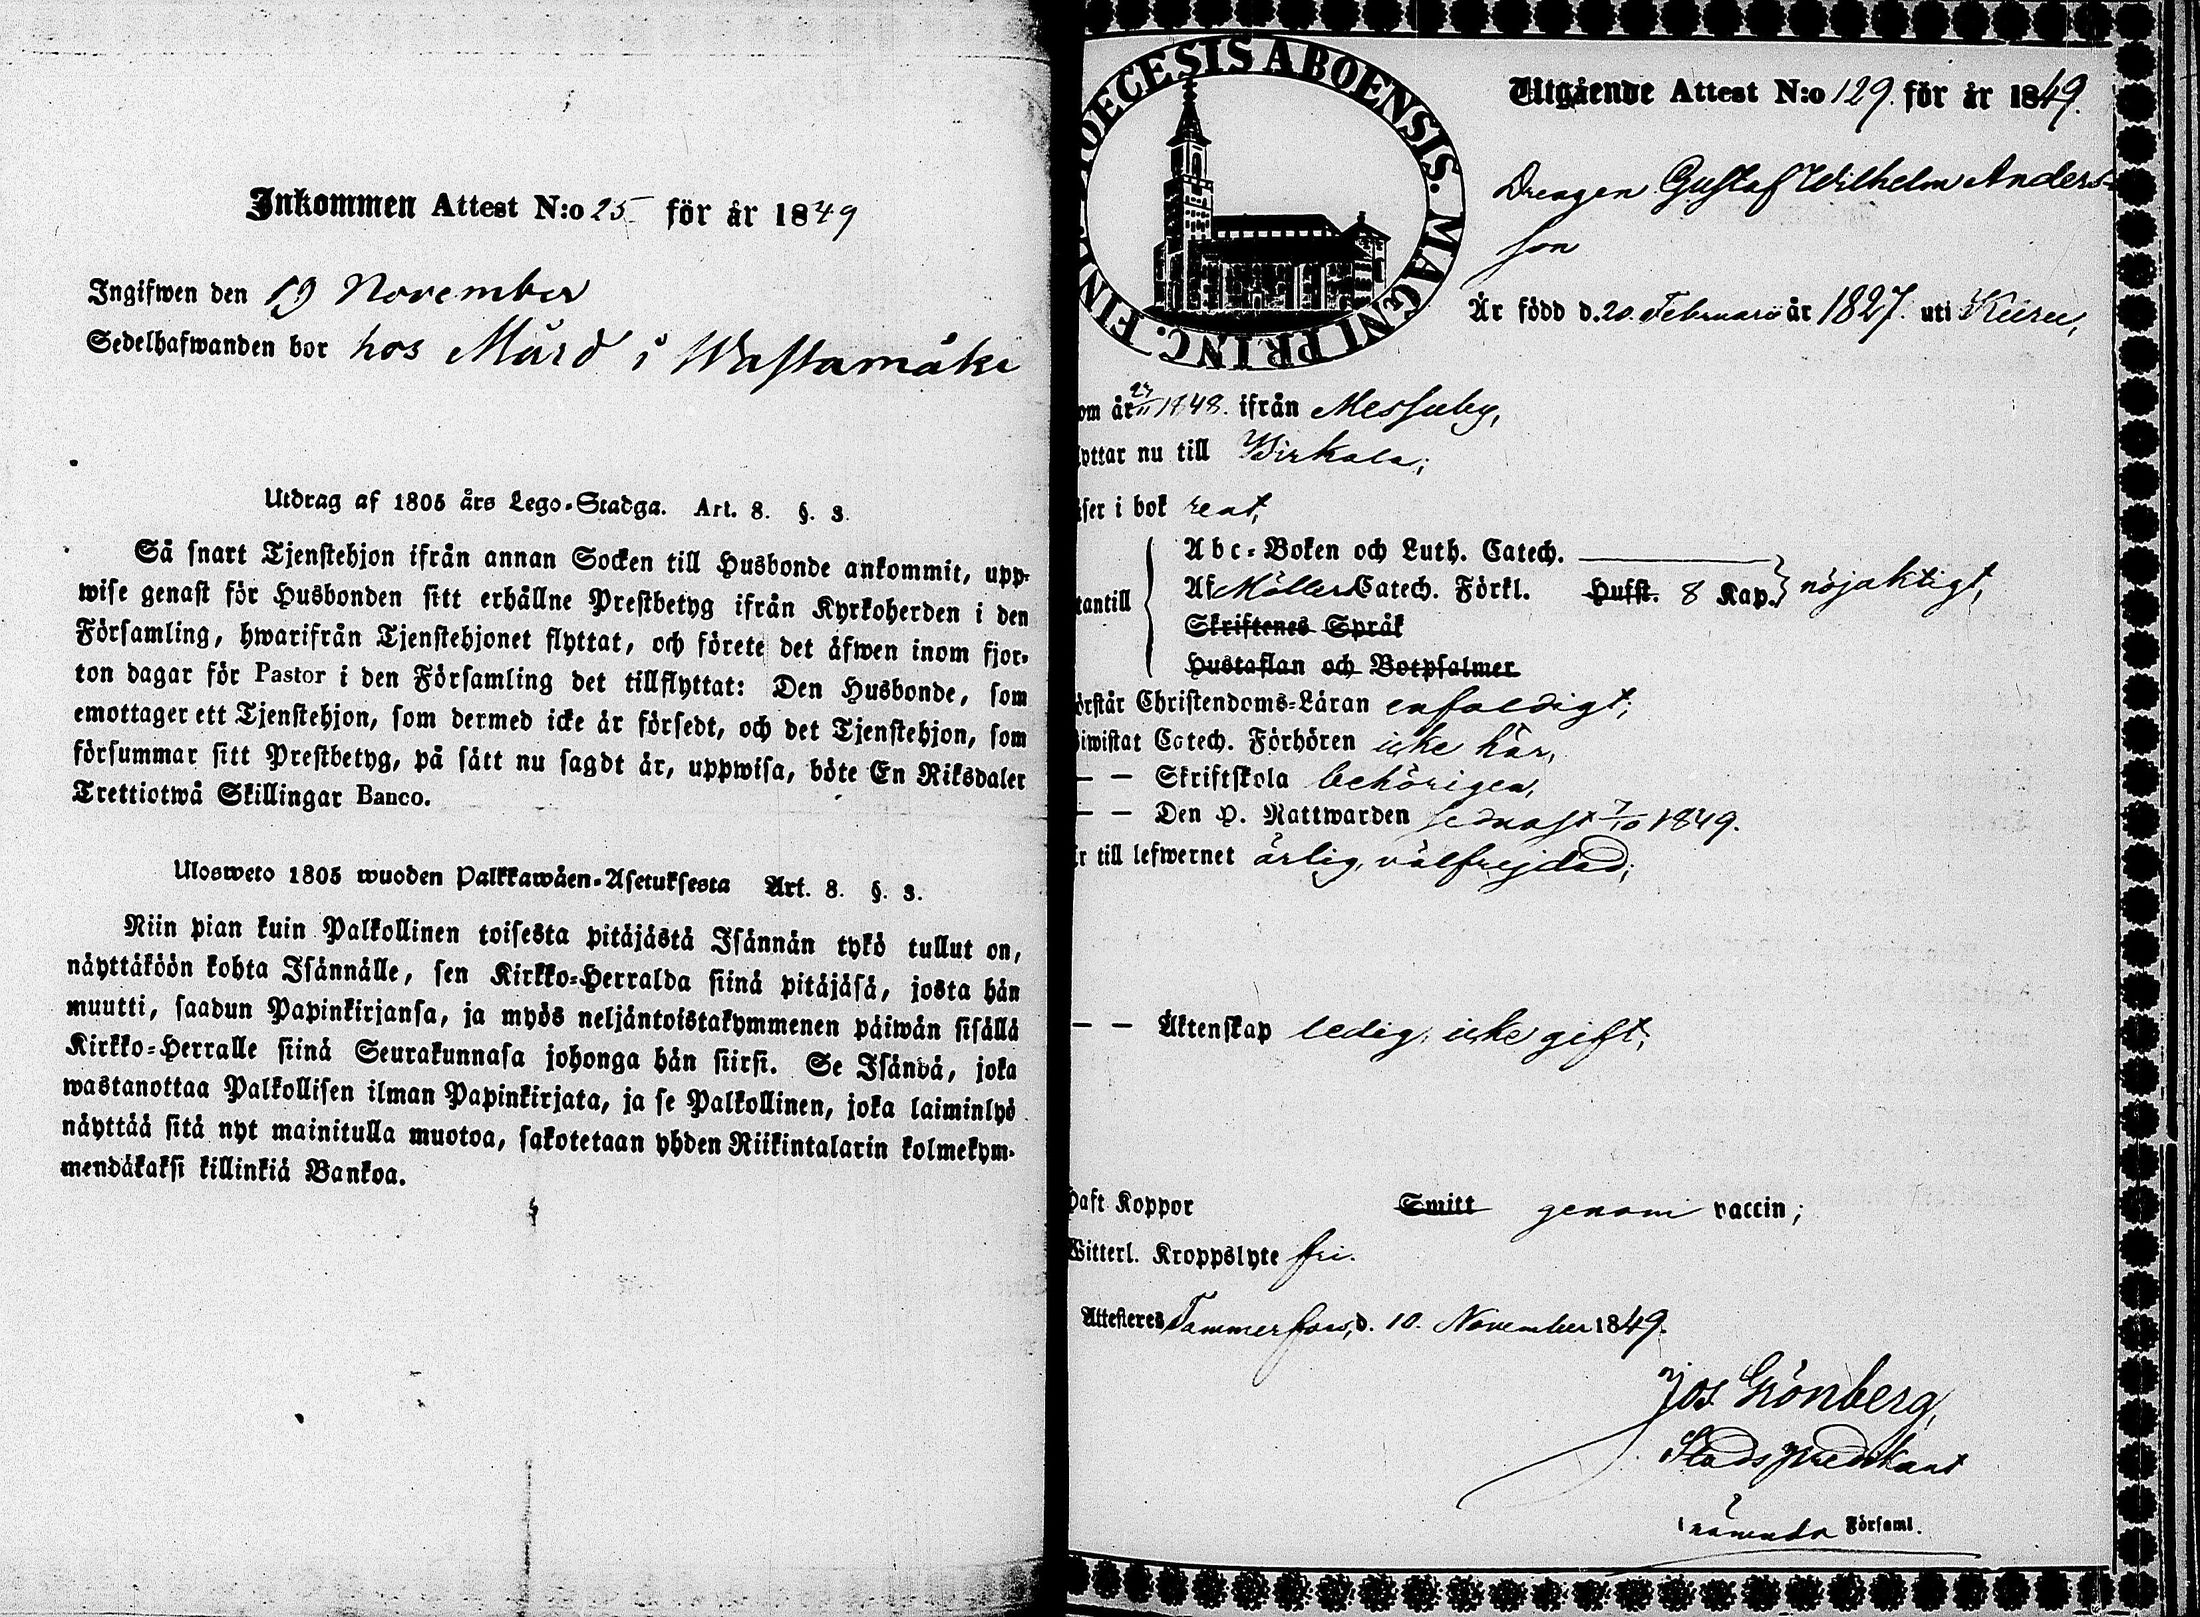 Inkommen Attest N:o 25 för år 1849
Ingifwen den 19 November
Sedelhafwanden bor hos Mård i Wastamäki
Utdrag af 1805 års Lego-Stadga. Art. 8. §. 3.
Så snart Tjenstehjon ifrån annan Socken till Husbonde ankommit, upp-
wise genast för Husbonden sitt erhållne Prestbetyg ifrån Kyrkoherden i den
Församling, hwarifrån Tjenstehjonet flyttat, och förete det äfwen inom fjor-
ton dagar för Pastor i den Församling det tillflyttat: Den Husbonde, som
emottager ett Tjenstehjon, som dermed icke är försedt, och det Tjenstehjon, som
försummar sitt Prestbetyg, på sätt nu sagdt är, uppwisa, böte En Riksdaler
Trettiotwå Skillingar Banco.
Ulosweto 1805 wuoden Palkkawäen-Asetuksesta Art. 8. §. 3.
Niin pian kuin Palkollinen toisesta pitäjästä Isännän tykö tullut on,
näyttäköön kohta Isännälle, sen Kirkko-Herralda siinä pitäjäsä, josta hän
muutti, saadun Papinkirjansa, ja myös neljäntoistakymmenen päiwän sisällä
Kirkko-Herralle siinä Seurakunnasa johonga hän siirsi. Se Isändä, joka
wastanottaa Palkollisen ilman Papinkirjata, ja se Palkollinen, joka laiminlyö
näyttää sitä nyt mainitulla muotoa, sakotetaan yhden Riikintalarin kolmekym-
mendäkaksi killinkiä Bankoa.
DIOECESIS ABOENSIS. MAGNI PRINC. FINL.
Utgående Attest N:o 129. för år 1849.
Drengen Gustaf Wilhelm Anders-
son
Är född d. 20. Februari år 1827. uti Kuru,
om år 27/11 1848. ifrån Messuby,
yttar nu till Birkala;
äser i bok rent,
Abc-Boken och Luth. Catech.
utantill Af Möllers Catech. Förkl. Husst. 8 Kap. nöjaktigt,
Skriftenes Språk
Hustaflan och Botpsalmer
örstår Christendoms-Läran enfaldigt;
iwistat Catech. Förhören icke här,
— — Skriftskola behörigen,
— — Den H. Nattwarden sednast 7/10 1849.
r till lefwernet ärlig, välfrejdad;
— — Äktenskap ledig, icke gift;
haft Koppor Smitt genom vaccin;
Witterl. Kroppslyte fri.
Attesteres Tammerfors, d. 10. November 1849.
Jos Grönberg,
Stadspredikant
i nämnda Församl.